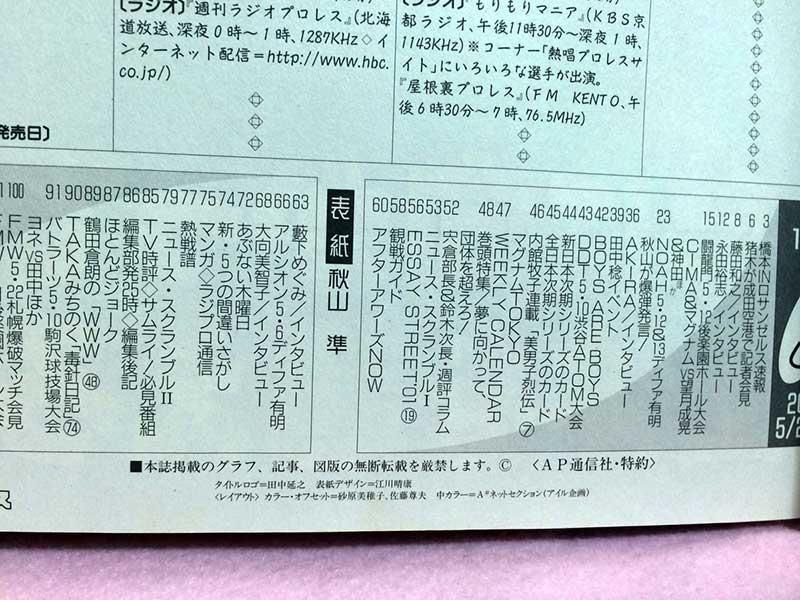 【ラジオ】『週刊ラジオプロレス』(北海
道放送、深夜0時〜1時、1287KHz◇イ
ンターネット配信=http://www.hbc.
co.jp/)
発売日)
【ラジオ】『もりもりマニア』(KBS京
都ラジオ、午後11時30分〜深夜1時、
1143KHz)※コーナー「熱唱プロレスサ
イト」にいろいろな選手が出演。
『屋根裏プロレス』(FM KENTO、午
後6時30分〜7時、76.5MHz)
5/2
3 橋本INロサンゼルス速報
6 猪木が成田空港で記者会見
8 藤田和之/インタビュー
12 永田裕志/インタビュー
15 闘龍門5・12後楽園ホール大会
CIMA&マグナムVS望月成晃
&神田ほか
23 NOAH5・12&13ディファ有明
秋山が爆弾発言!
36 AKIRA/インタビュー
39 田中稔イベント
42 BOYS ARE BOYS
43 DDT5・10渋谷ATOM大会
44 新日本次期シリーズのカード
45 全日本次期シリーズのカード
46 内館牧子連載「美男子烈伝」⑦
マグナムTOKYO
47 WEEKLY CALENDAR
48 巻頭特集/夢に向かって、
団体を超えろ!
52 宍倉部長&鈴木次長・週評コラム
53 ニュース・スクランブルⅠ
56 ESSAY STREET'01⑲
58 観戦ガイド
60 アフターアワーズNOW
表紙 秋山 準
63 藪下めぐみ/インタビュー
66 アルシオン5・6ディファ有明
68 大向美智子/インタビュー
72 あぶない木曜日
74 新・5つの間違いさがし
75 マンガ◇ラジプロ通信
77 熱戦譜
79 ニュース・スクランブルⅡ
85 TV時評◇サムライ!必見番組
86 編集部発25時◇編集後記
87 ほとんどジョーク
89 鶴田倉朗の「WWW」㊽
90 TAKAみちのく「青針日記」74
91 バトラーツ5・10駒沢球技場大会
ヨネVS田中ほか
100 FMW5・22札幌爆破マッチ会見
■本誌掲載のグラフ、記事、図版の無断転載を厳禁します。© 〈AP通信社・特約〉
タイトルロゴ=田中延之 表紙デザイン=江川晴康
〈レイアウト〉カラー・オフセット=砂原美稚子、佐藤尊夫 中カラー=A#ネットセクション(アイル企画)